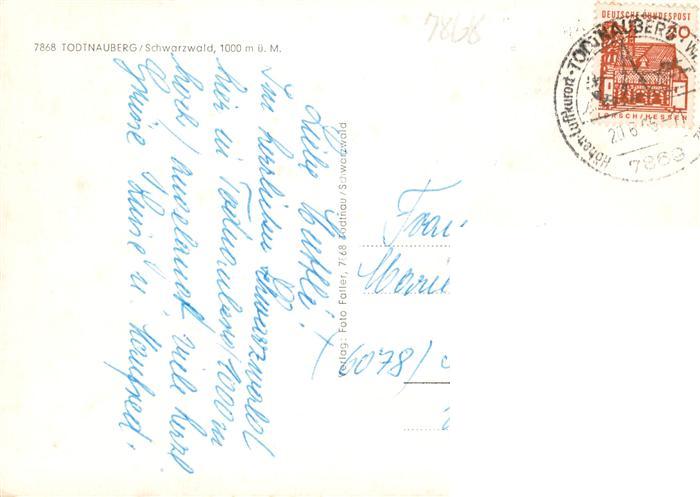 7868
7868 TODTNAUBERG/Schwarzwald, 1000 m ü. M.
DEUTSCHE BUNDESPOST
20
LORSCH/HESSEN
Höhen-Luftkurort · TODTNAUBERG
7868
Verlag: Foto Faller, 7868 Todtnau/Schwarzwald
Liebe
Im herrlichen Schwarzwald
hier in Todtnauberg/1000 m
hoch/ viele herzl
Grüsse u. Manfred.
Frau
6078/